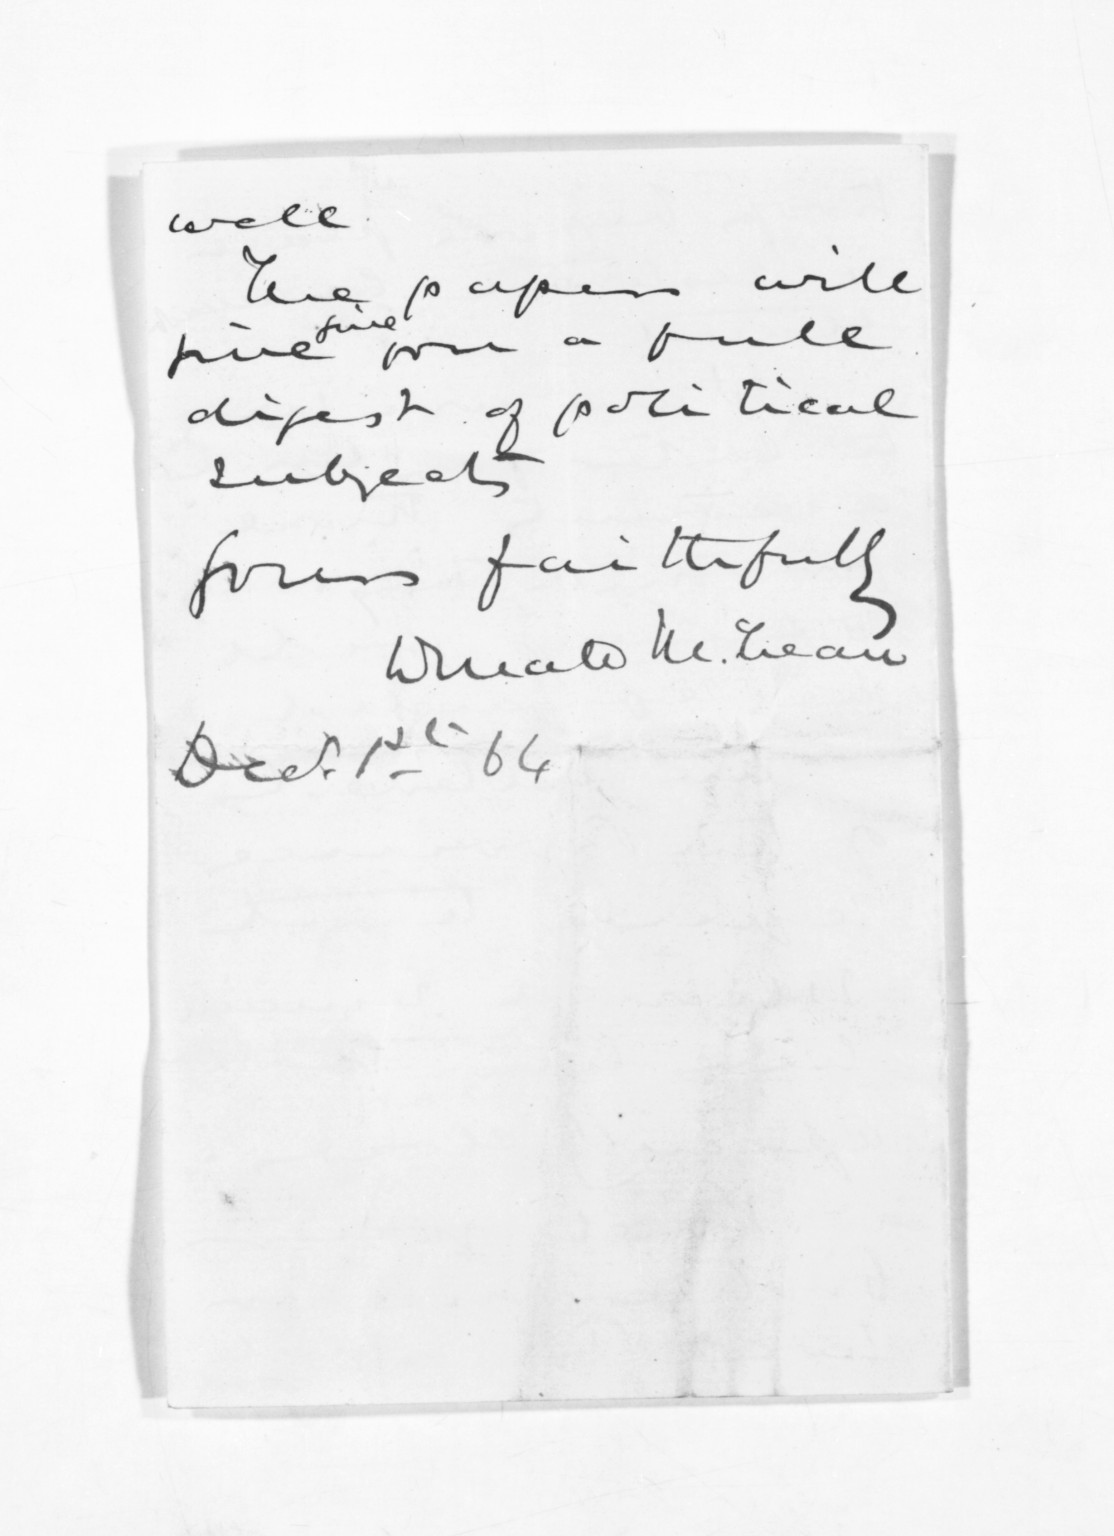 well.
The papers will
give give you a full
digest of political
subjects
Yours faithfully
Donald McLean
Decr. 1st 64